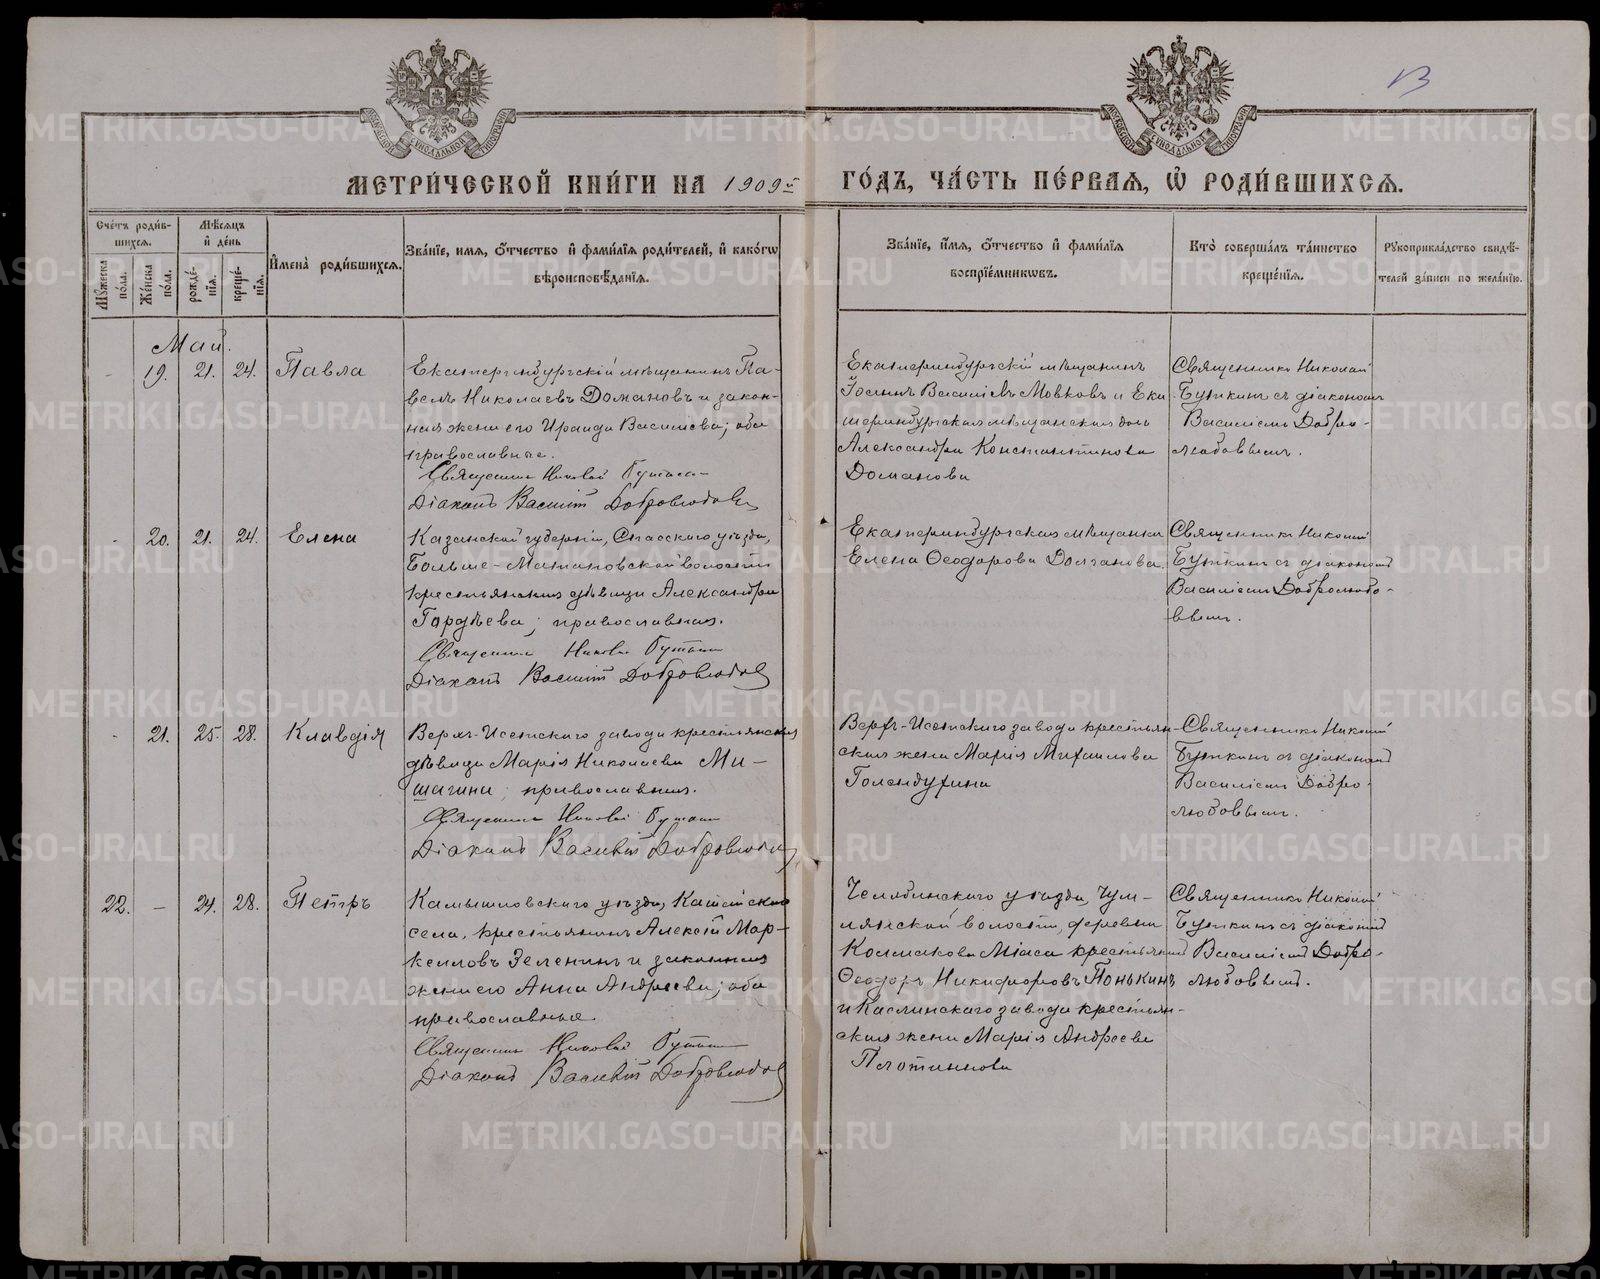 13
МЕТРИ́ЧЕСКОЙ КНИ́ГИ НА 1909 г. ГО́ДЪ, ЧА́СТЬ ПЕ́РВАЯ, Ѿ РОДИ́ВШИХСЯ.
Сче́тъ роди́в-
шихся.
Му́жеска по́ла.
Же́нска по́ла.
Мѣ́сяцъ и́ де́нь
рожде́-
нїя.
креще́-
нїя.
И́мена̀ роди́вшихся.
Зва́нїе, и́мя, о́тчество и́ фами́лїя роди́телей, и́ како́гѡ
вѣроисповѣ́данїя.
Зва́нїе, и́мя, о́тчество и́ фами́лїя
воспрїе́мникѡвъ.
Кто̀ соверша́лъ та́инство
креще́нїя.
Рꙋкоприкла́дство свидѣ́-
телей за́писи по жела́нїю.
Май.
- 19. 21. 24. Павла
Екатеринбургскій мѣщанинъ Па-
велъ Николаевъ Домановъ и закон-
ная жена его Ираида Васильева; оба
православные.
Священникъ Николай Буткинъ
Діаконъ Василій Добролюбовъ
Екатеринбургскій мѣщанинъ
Іоаннъ Васильевъ Мовковъ и Ека
теринбургская мѣщанская дочь
Александра Константинова
Доманова
Священникъ Николай
Буткинъ съ діакономъ
Василіемъ Добро-
любовымъ.
- 20. 21. 24. Елена
Казанской губерніи, Спасскаго уѣзда,
Больше-Матаковской волости
крестьянская дѣвица Александра
Гордѣева; православная.
Священникъ Николай Буткинъ
Діаконъ Василій Добролюбовъ
Екатеринбургская мѣщанка
Елена Ѳеодорова Долганова.
Священникъ Николай
Буткинъ съ діакономъ
Василіемъ Добролюбо-
вымъ.
- 21. 25. 28. Клавдія
Верхъ-Исетскаго завода крестьянская
дѣвица Марія Николаева Ми-
шагина; православная.
Священникъ Николай Буткинъ
Діаконъ Василій Добролюбовъ
Верхъ-Исетскаго завода крестьян-
ская жена Марія Михаилова
Голендухина
Священникъ Николай
Буткинъ съ діакономъ
Василіемъ Добро-
любовымъ.
22. — 24. 28. Петръ
Камышловскаго уѣзда, Катайскаго
села, крестьянинъ Алексій Мар-
келловъ Зеленинъ и законная
жена его Анна Андреева; оба
православные.
Священникъ Николай Буткинъ
Діаконъ Василій Добролюбовъ
Челябинскаго уѣзда, Чум-
лякской волости, деревни
Колмакова Міаса крестьянинъ
Ѳеодоръ Никифоровъ Понькинъ
и Каслинскаго завода крестьян-
ская жена Марія Андреева
Плотникова
Священникъ Николай
Буткинъ съ діакономъ
Василіемъ Добро-
любовымъ.
METRIKI.GASO-URAL.RU